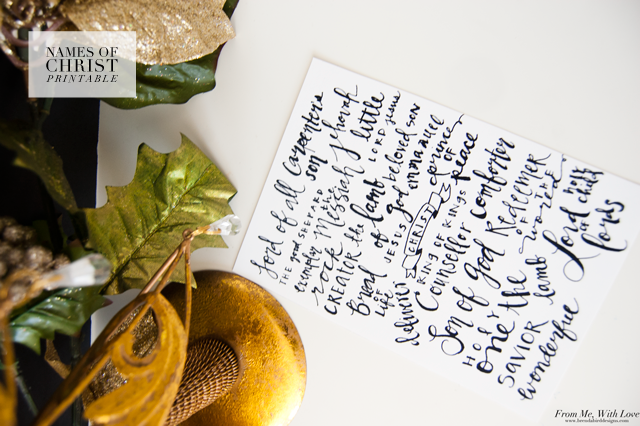 NAMES OF
CHRIST
PRINTABLE
Lord of all carpenters
THE good SHEPHERD son Jehovah
everyday Messiah little
rock the lamb LORD Jesus
CREATER of god beloved son
Bread JESUS EMMANUEL
OF LIFE CHRIST prince OF
deliverer KING OF KINGS peace
Counseller comforter
Son of God REDEEMER
HOLY the OF THE
one lamb world
SAVIOR Lord holy child
wonderful OF lords
From Me, With Love
www.brendabirddesigns.com